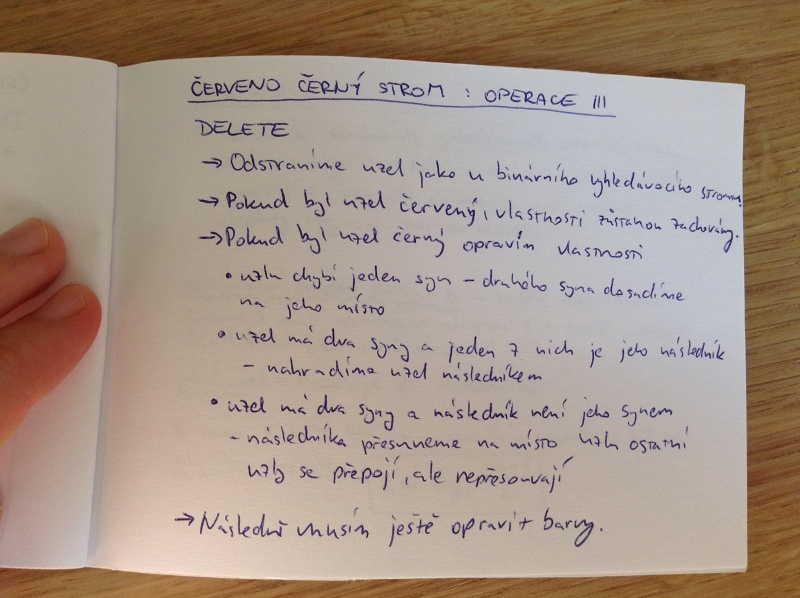 ČERVENO ČERNÝ STROM : OPERACE III
DELETE
→ Odstraníme uzel jako u binárního vyhledávacího stromu.
→ Pokud byl uzel červený, vlastnosti zůstanou zachovány.
→ Pokud byl uzel černý opravím vlastnosti
• uzlu chybí jeden syn – druhého syna dosadíme
na jeho místo
• uzel má dva syny a jeden z nich je jeho následník
– nahradíme uzel následníkem
• uzel má dva syny a následník není jeho synem
– následníka přesuneme na místo uzlu ostatní
uzly se přepojí, ale nepřesouvají
→ Následně musím ještě opravit barvy.